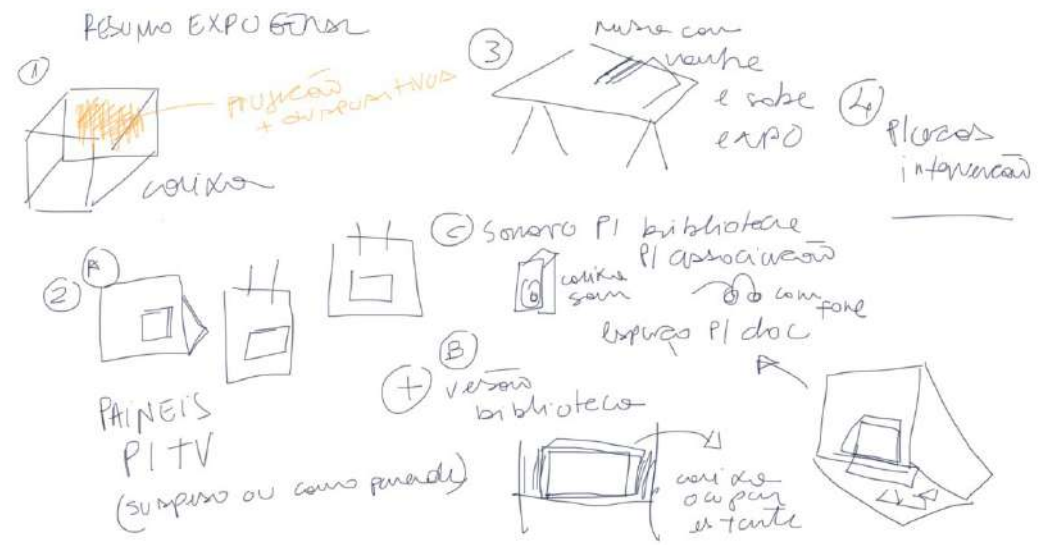 RESUMO EXPO GERAL
1
projeção
+ dispositivos
caixa
3
mesa com
e sobe
EXPO
4
Placas
intervenção
2
A
PAINEIS
P/ TV
(suspenso ou como parede)
C Sonoro P/ biblioteca
P/ associação
caixa
som
com
fone
espaço P/ doc
+ B
versão
biblioteca
caixa
ocupar
estante